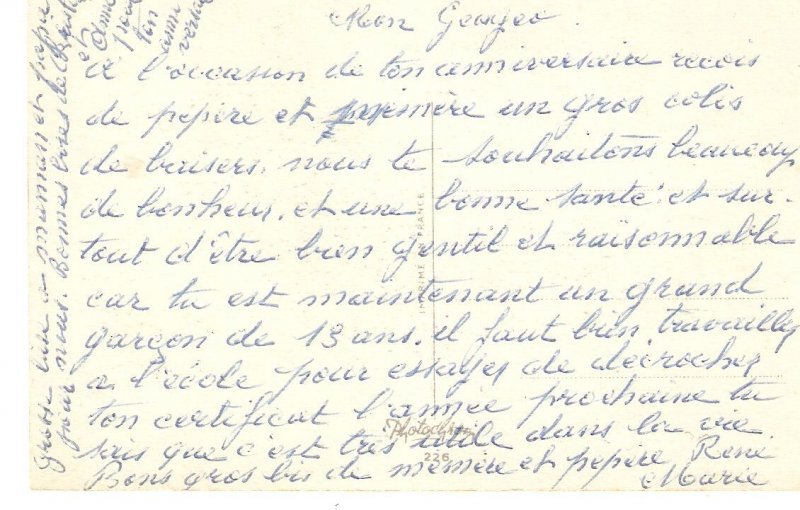 Mon Georges.
à l'occasion de ton anniversaire reçois
de pépère et mémère un gros colis
de baisers, nous te souhaitons beaucoup
de bonheur, et une bonne santé et sur-
tout d'être bien gentil et raisonnable
car tu est maintenant un grand
garçon de 13 ans, il faut bien travailler
a l'école pour essayer de décrocher
ton certificat l'année prochaine tu
sais que c'est très utile dans la vie
Bons gros bis de mémère et pépère René
Marie
Grosse bise a maman et papa
pour nous. Bonnes bises de
pour
ton
IMPRIMÉ EN FRANCE
Photochrom
226